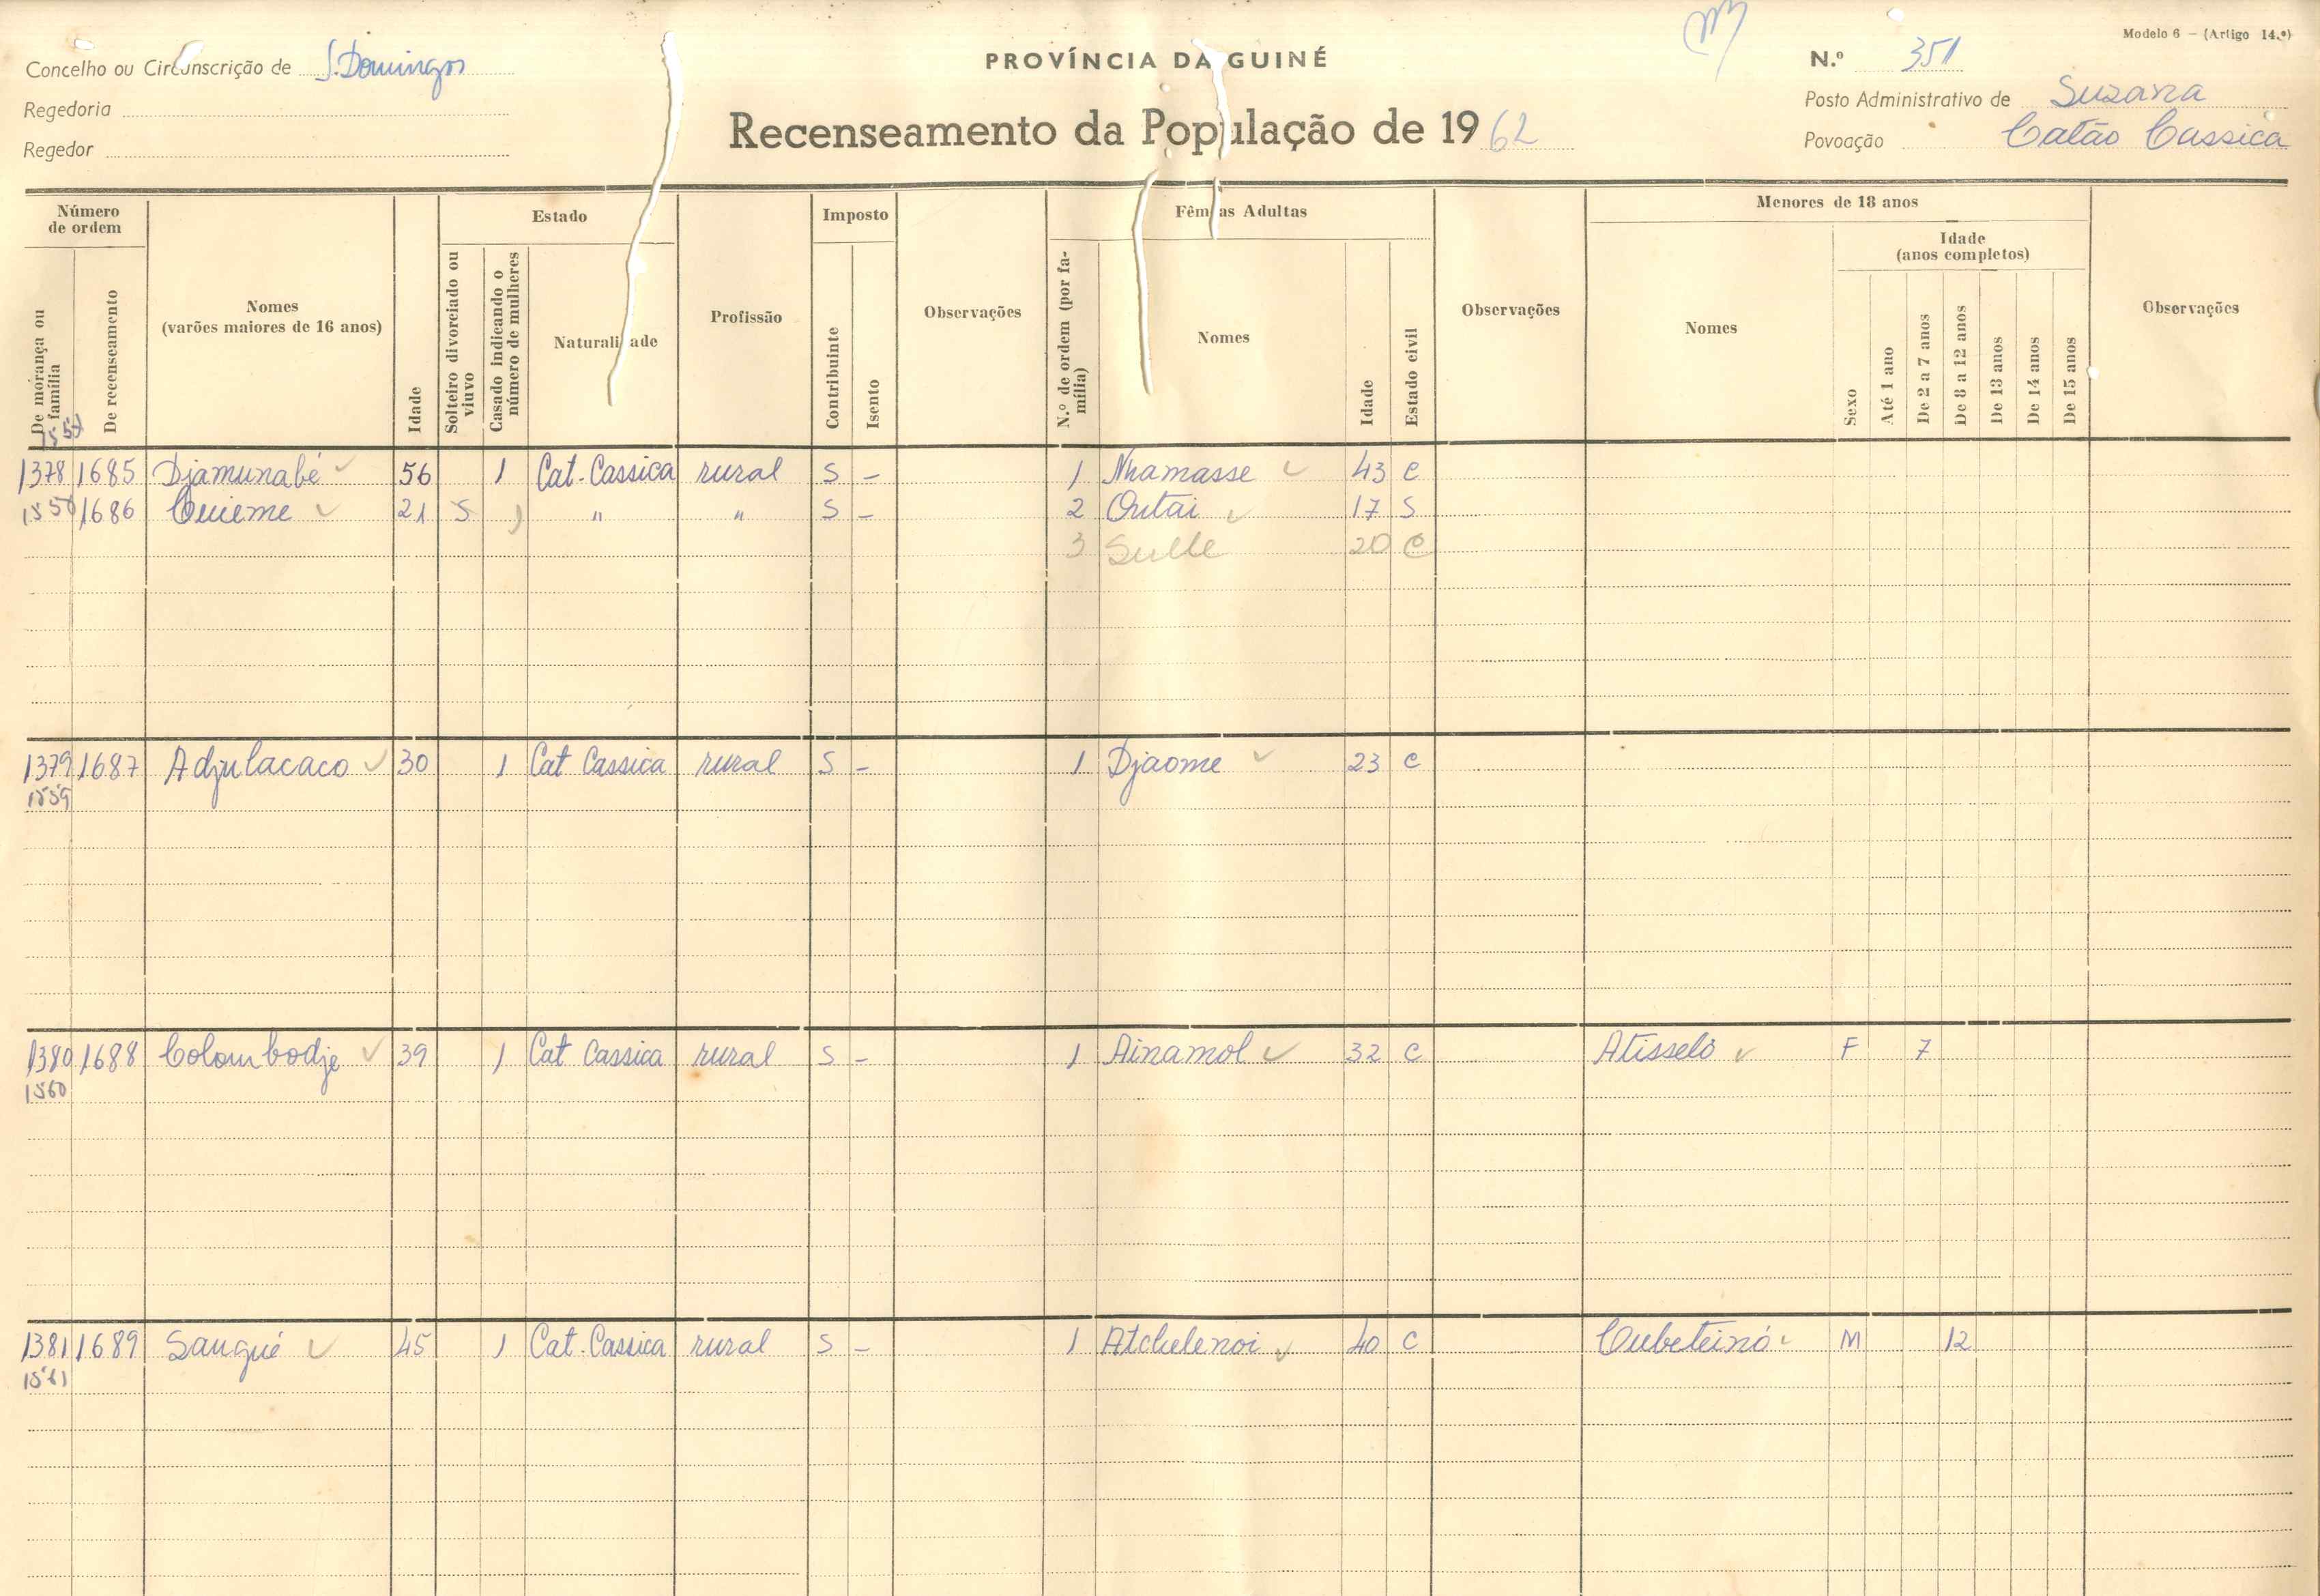 Modelo 6 — (Artigo 14.º)
Concelho ou Circunscrição de S. Domingos
PROVÍNCIA DA GUINÉ
N.º 351
Regedoria
Posto Administrativo de Suzana
Regedor
Recenseamento da População de 1962
Povoação Catão Cassica
Número de ordem
De morança ou família
De recenseamento
Nomes
(varões maiores de 16 anos)
Idade
Estado
Solteiro divorciado ou viuvo
Casado indicando o número de mulheres
Naturalidade
Profissão
Imposto
Contribuinte
Isento
Observações
Fêmeas Adultas
N.º de ordem (por família)
Nomes
Idade
Estado civil
Observações
Menores de 18 anos
Nomes
Idade
(anos completos)
Sexo
Até 1 ano
De 2 a 7 anos
De 8 a 12 anos
De 13 anos
De 14 anos
De 15 anos
Observações
1378 1685 Djamunabé 56 1 Cat. Cassica rural S – 1 Nhamasse 43 C
1686 Cuieme 21 S ) " " S – 2 Outai 17 S
3 Sulle 20 C
1379 1687 Adjulacaco 30 1 Cat Cassica rural S – 1 Djaome 23 C
1559
1380 1688 Colombodje 39 1 Cat Cassica rural S – 1 Ainamol 32 C Atisseló F 7
1560
1381 1689 Sangué 45 1 Cat. Cassica rural S – 1 Atchelenoi 40 C Cubeteinó M 12
1561